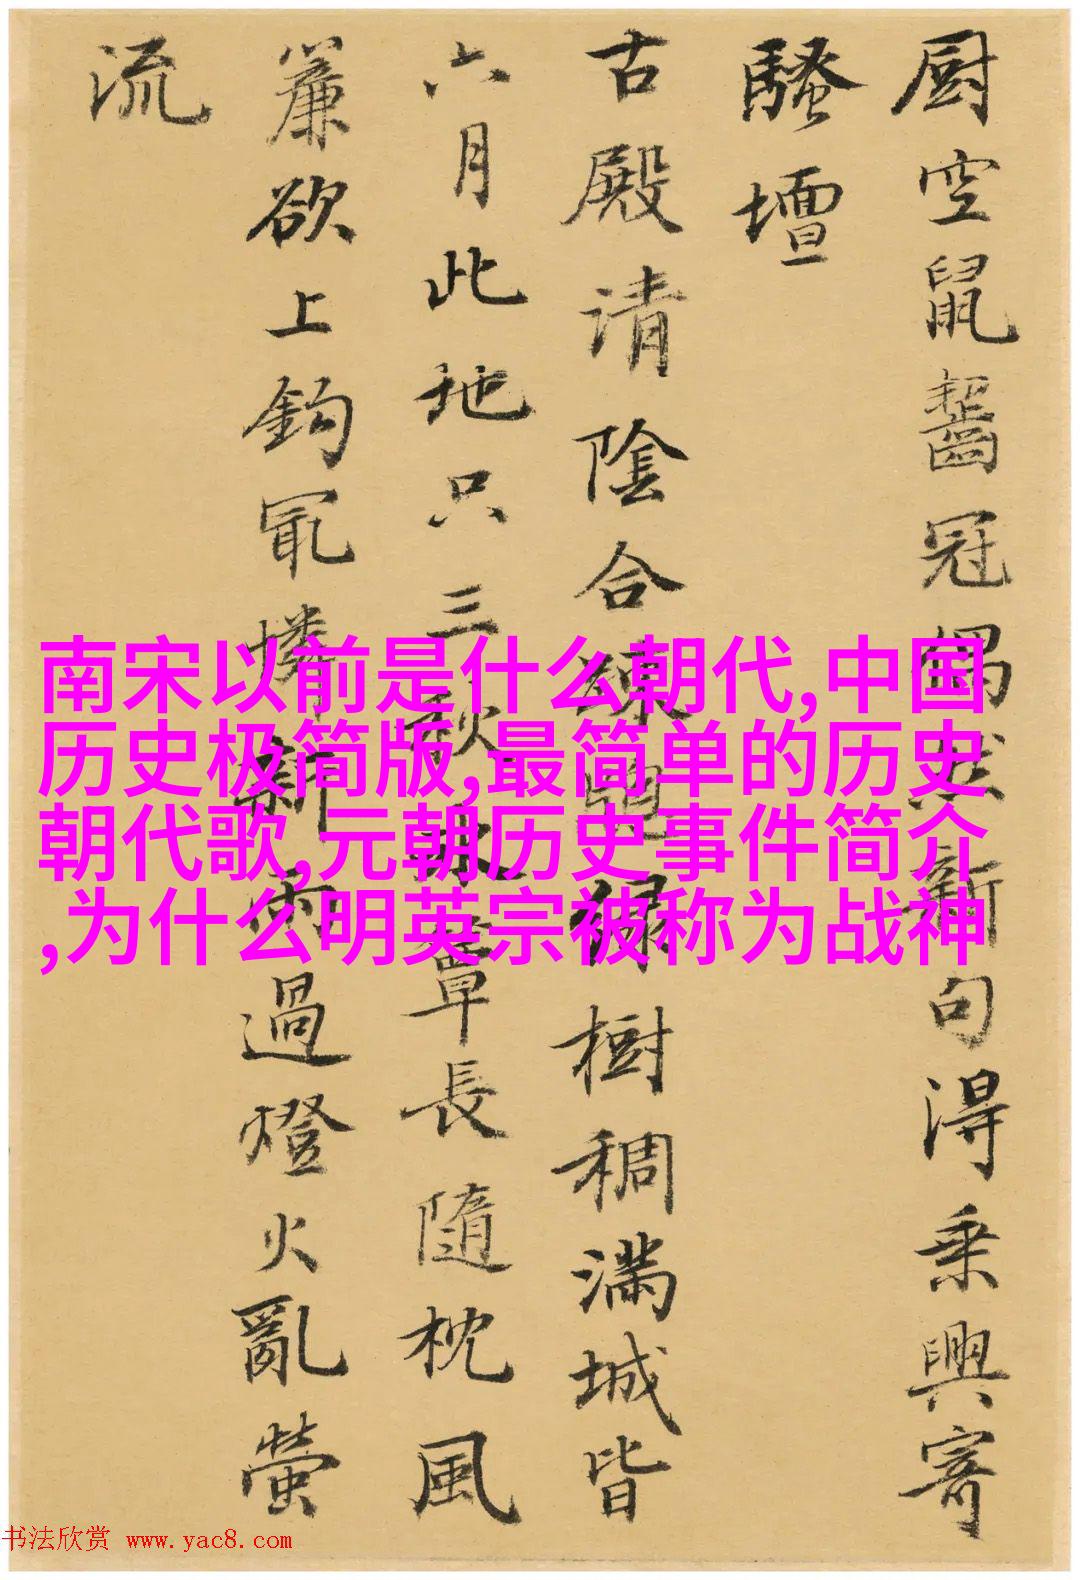 厨空鼠齧冠偶然新句得乘興寄
騷壇
古殿请陰合
樹稠满城皆
六月此地只三秋
簟長隨枕風
簾欲上鈎
憐新雨過燈火亂螢
流
南宋以前是什么朝代,中国
历史极简版,最简单的历史
朝代歌,元朝历史事件简介
,为什么明英宗被称为战神
书法欣赏 www.yac8.com